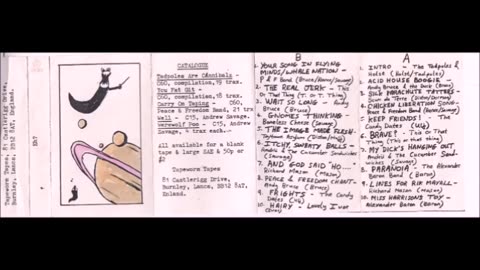 Tapeworm Tapes, 81 Castlerigg
Drive, Burnley, Lancs, BB12 8AT,
England.
CATALOGUE
Tadpoles Are Cannibals -
D60, compilation, 19 trax.
You Fat Git -
D60, compilation, 18 trax.
Carry On Taping - D60,
Peace & Freedom Band, 21 trax
Well - C15, Andrew Savage.
Werewolf Poo - C15, Andrew
Savage, 4 trax each.
All available for a blank
tape & large SAE & 50p or
$2
Tapeworm Tapes
81 Castlerigg Drive,
Burnley, Lancs, BB12 8AT,
England.
B
1. YOUR SONG IN FLYING
MINDS/WHALE NATION -
P & F Band (Bruce/Rance/Savage)
2. THE REAL JERK - This
Or That (T. O. T. Thing)
3. WAIT SO LONG - Andy
Bruce (Bruce)
4. GNOMES THINKING -
Boneless Cheese (Savage)
5. THE IMAGE MADE FLESH -
6. ITCHY, SWEATY BALLS -
Andrix & The Cucumber Sandwiches
(Savage)
7. AND GOD SAID 'HO' -
Richard Mason (Mason)
8. PEACE & FREEDOM CHANT -
Andy Bruce (Bruce)
9. FRIGHTS - The Candy
Dates (Ug)
10. HAIRY - Lovely Ivor
A
1. INTRO - The Tadpoles &
Holst (Holst/Tadpoles)
2. ACID HOUSE BOOGIE -
Andy Bruce & The Duck (Bruce)
3. SILK PARACHUTE TITTIES -
4. CHICKEN LIBERATION SONG -
Peace & Freedom Band (Savage)
5. KEEP FRIENDS! - The
Candy Dates (Ug)
6. BRAVE? - This Or
That Thing (This or that thing)
7. MY DICK'S HANGING OUT -
Andrix & The Cucumber Sand-
wiches (Savage)
8. PARANOIA - The Alexander
Baron Band (Baron)
9. LINES FOR RIK MAYALL -
Richard Mason (Mason)
10. MISS HARRISONS TOY -
Alexander Baron (Baron)